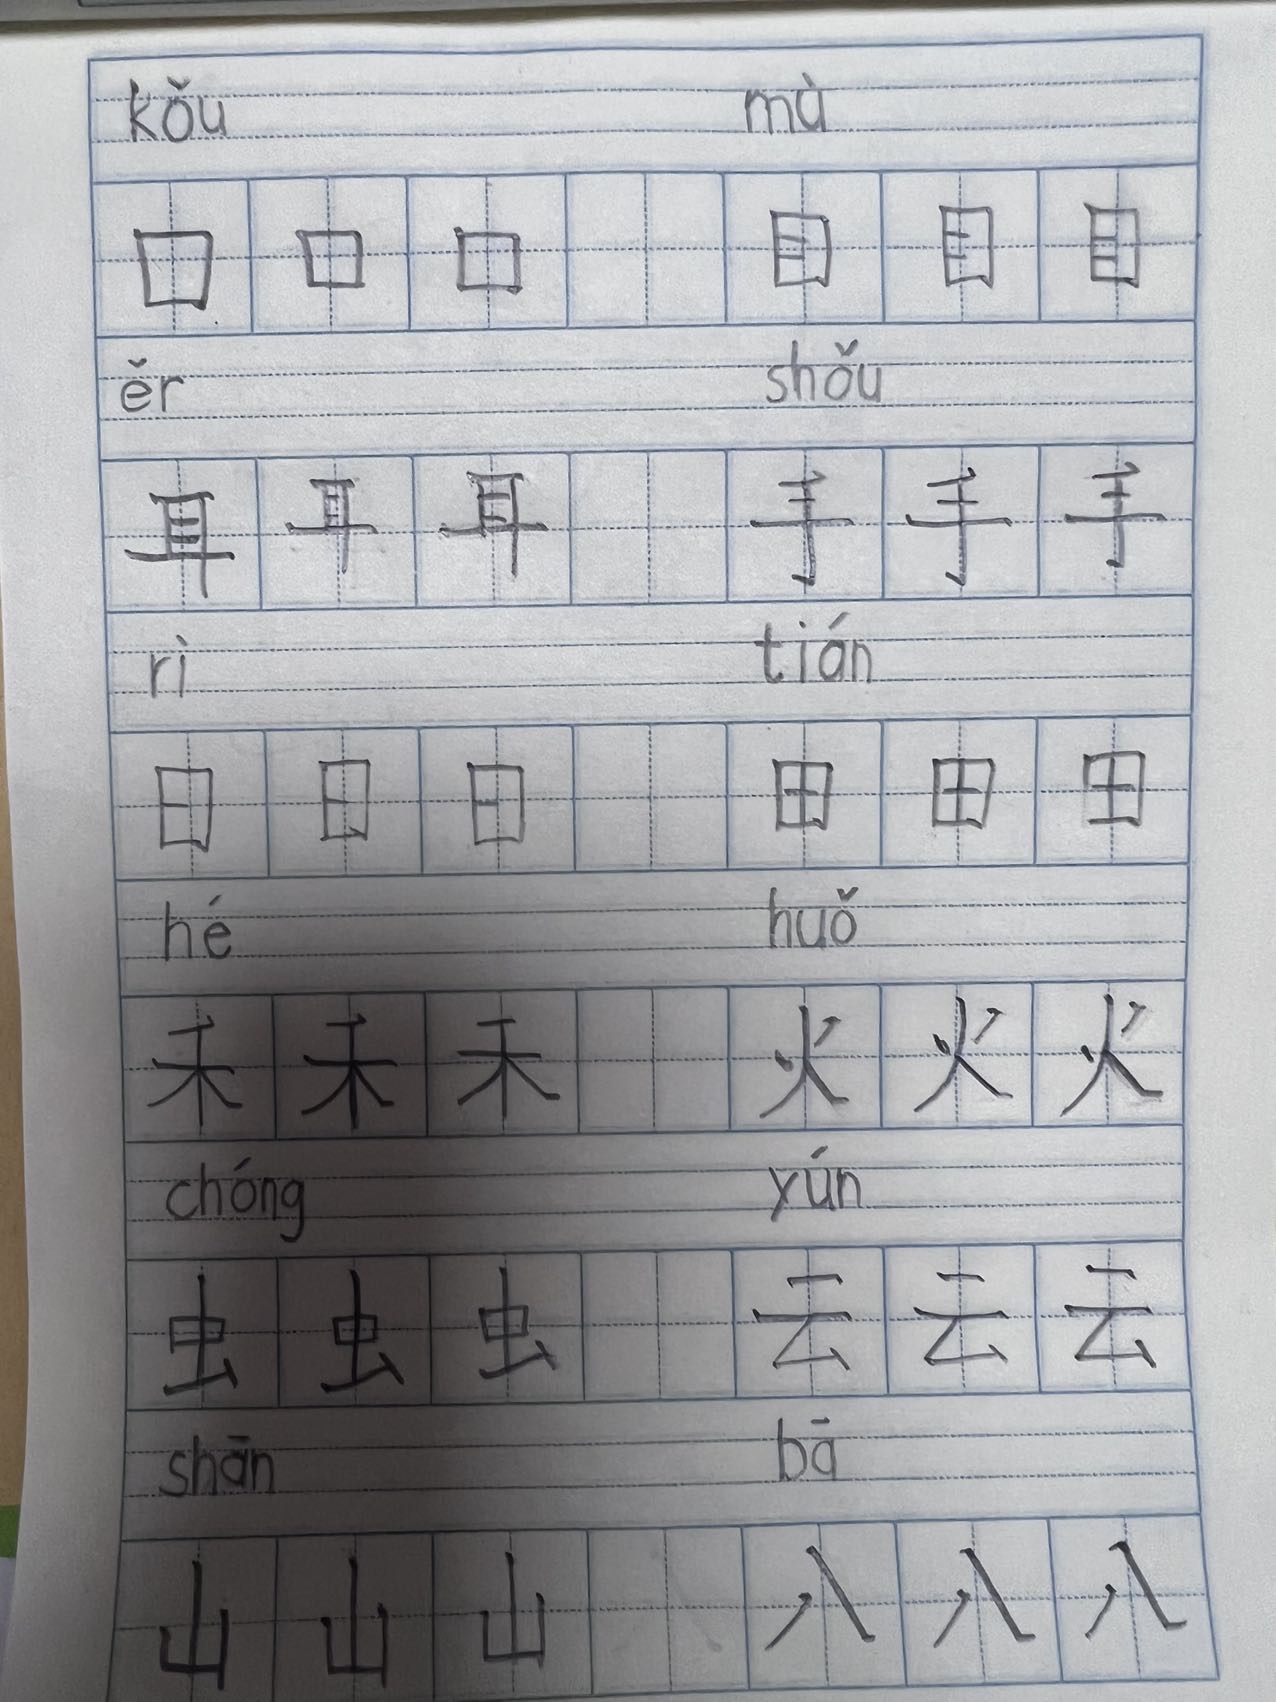 kǒu mù
口 口 口 目 目 目
ěr shǒu
耳 耳 耳 手 手 手
rì tián
日 日 日 田 田 田
hé huǒ
禾 禾 禾 火 火 火
chóng yún
虫 虫 虫 云 云 云
shān bā
山 山 山 八 八 八